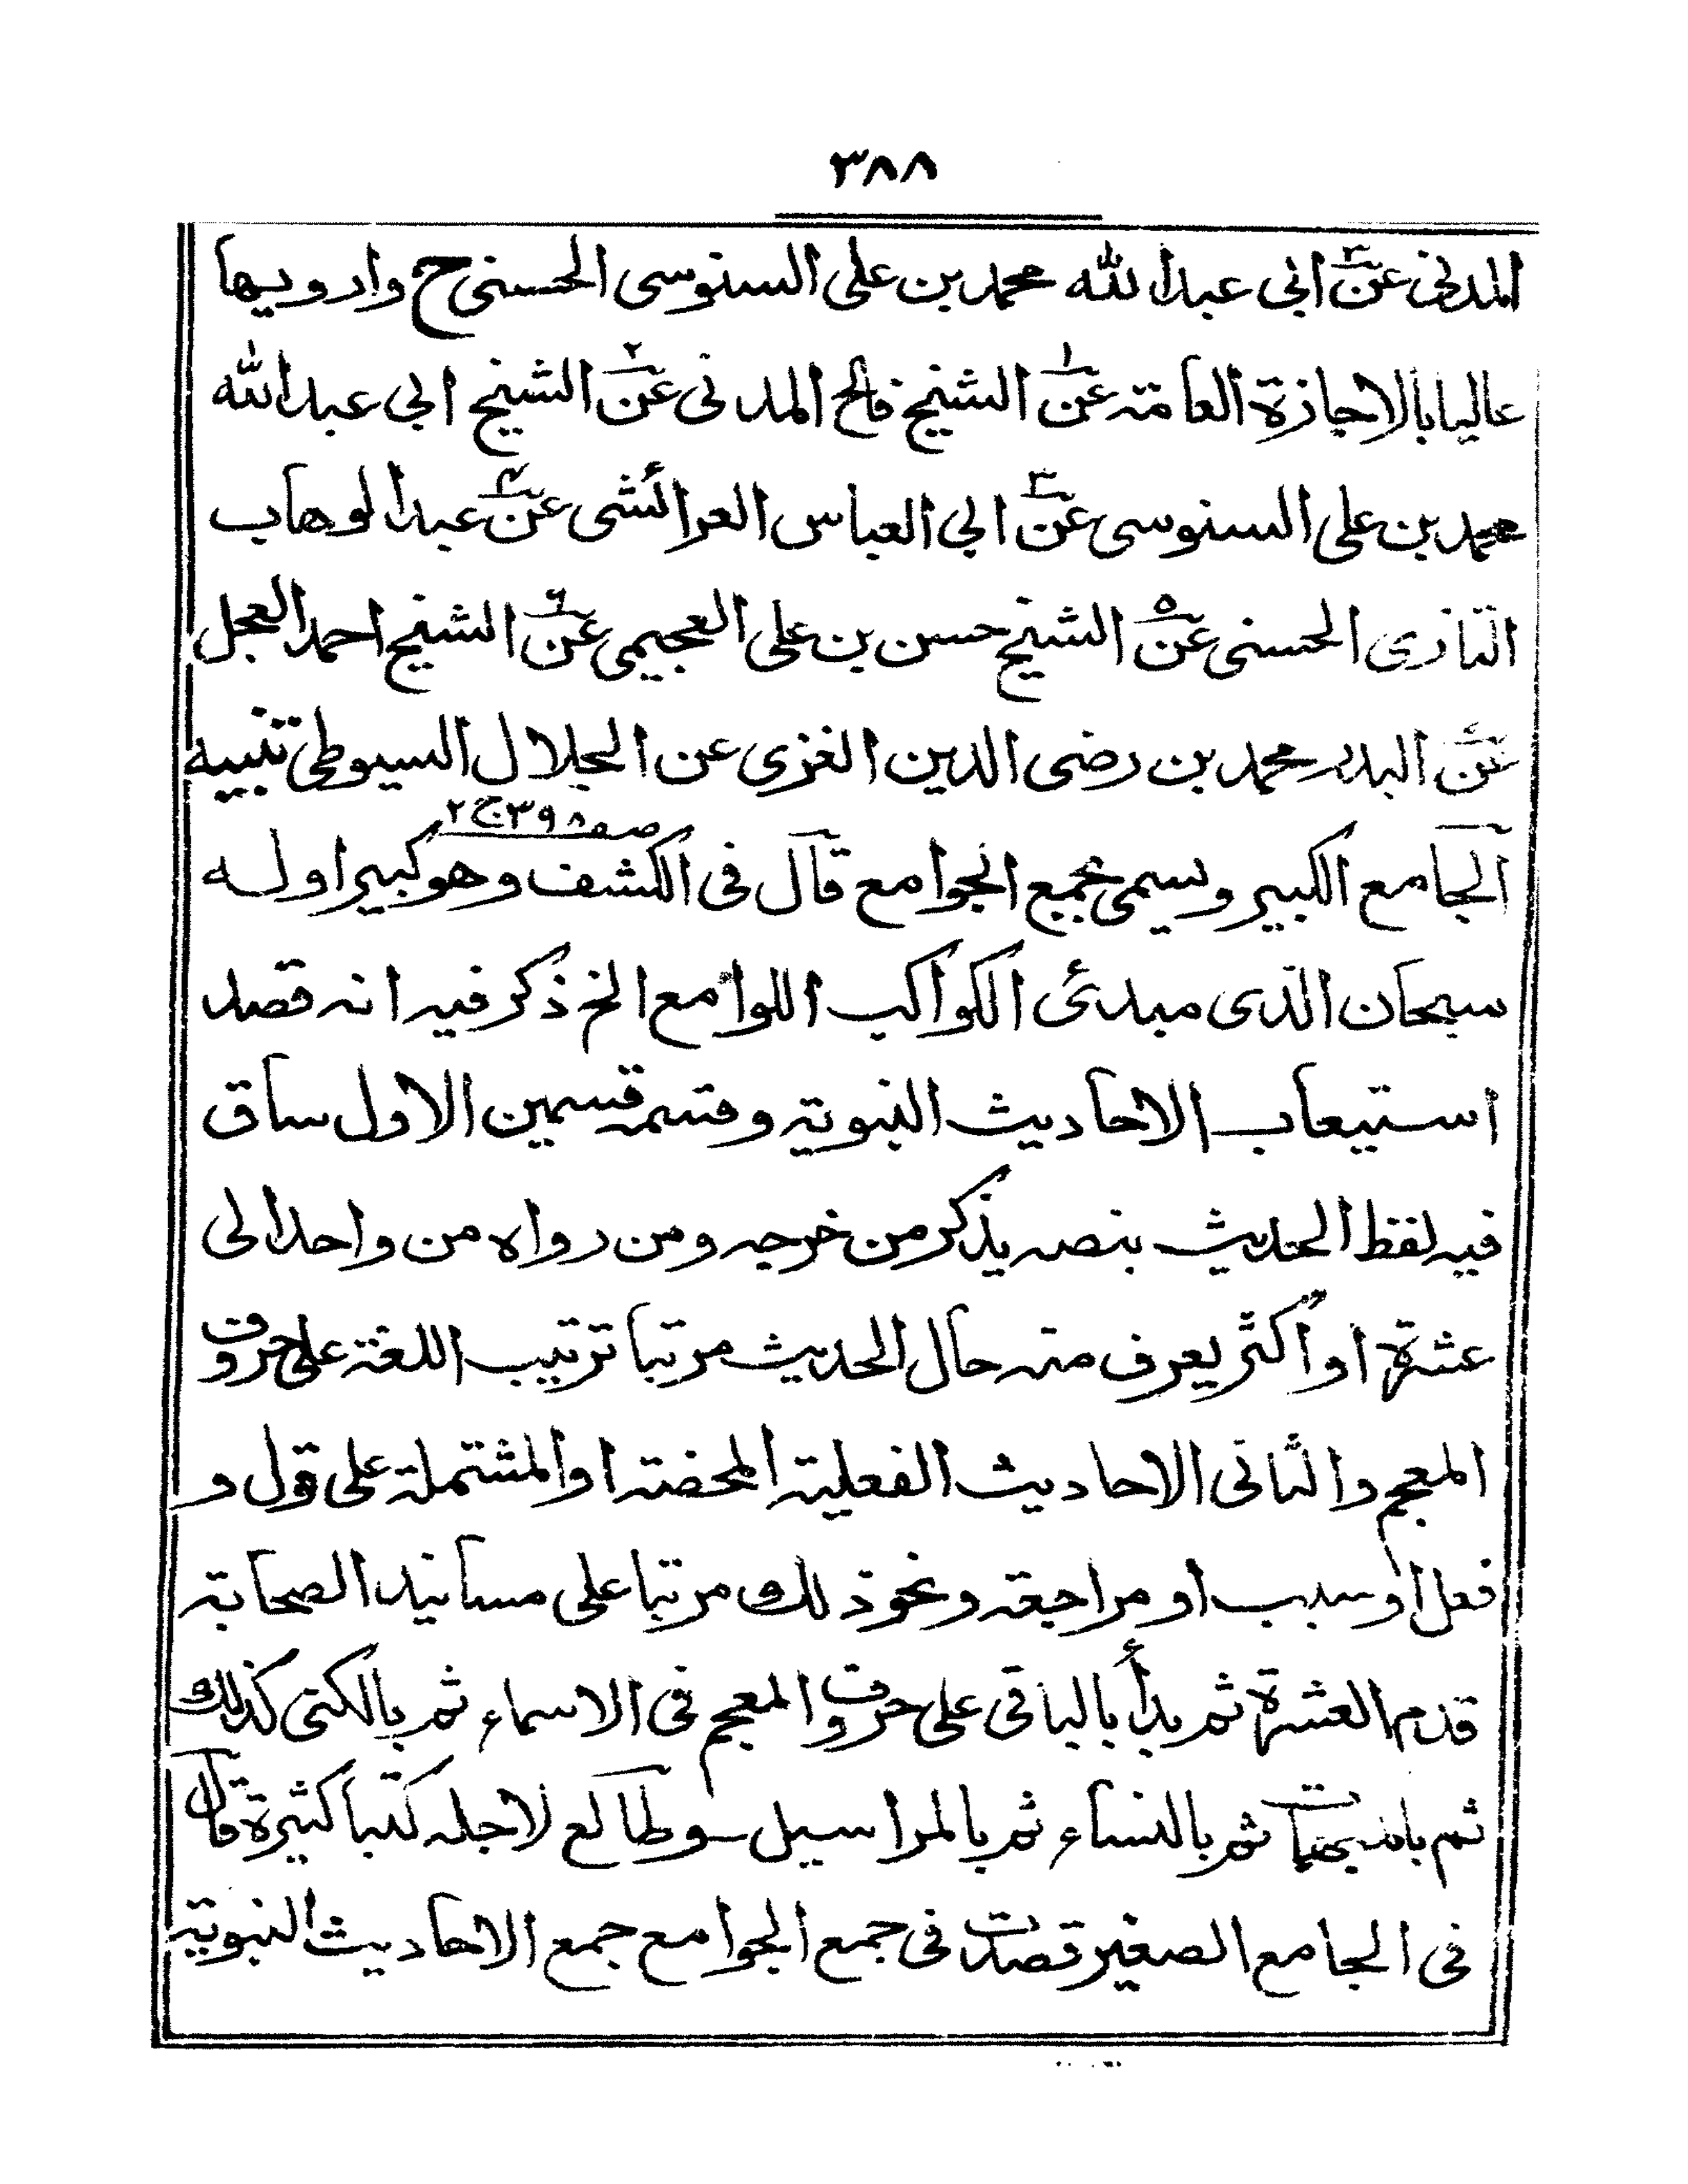 ٣٨٨
المدنى عن ابى عبد الله محمد بن على السنوسى الحسنى ح وارويها
عاليا بالاجازة العامة عن ١ الشيخ فالح المدنى عن ٢ الشيخ ابى عبد الله
محمد بن على السنوسى عن ٣ ابى العباس العرائشى عن ٤ عبد الوهاب
التازى الحسنى عن ٥ الشيخ حسن بن على العجيمى عن ٦ الشيخ احمد العجل
عن البدر محمد بن رضى الدين الغزى عن الجلال السيوطى تنبيه
صـ ٣٩٨ ج ٢
الجامع الكبير ويسمى بجمع الجوامع قال فى الكشف وهو كبير اوله
سبحان الذى مبدئ الكواكب اللوامع الخ ذكر فيه انه قصد
استيعاب الاحاديث النبوية وقسمه قسمين الاول ساق
فيه لفظ الحديث بنصه يذكر من خرجه ومن رواه من واحد الى
عشرة او اكثر يعرف منه حال الحديث مرتبا ترتيب اللغة على حروف
المعجم والثانى الاحاديث الفعلية المحضة او المشتملة على قول و
فعل او سبب او مراجعة ونحو ذلك مرتبا على مسانيد الصحابة
قدم العشرة ثم بدأ بالباقى على حروف المعجم فى الاسماء ثم بالكنى كذلك
ثم بالمبهمات ثم بالنساء ثم بالمراسيل وطالع لاجله كتبا كثيرة قال
فى الجامع الصغير قصدت فى جمع الجوامع جمع الاحاديث النبوية